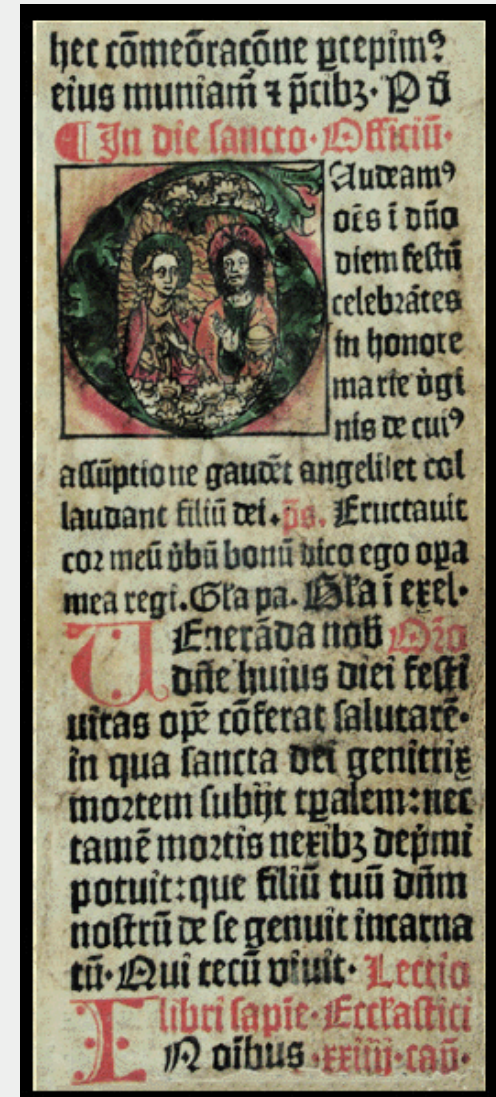 hec cōmeōracōne ꝑcepimꝰ
eius muniam̄ ⁊ p̄cibꝫ. P dm̄
¶ In die sancto. Officiū.
Gaudeamꝰ
oēs ī dño
diem festū
celebrātes
in honore
marie v̇gi
nis de cuiꝰ
assūptione gaudēt angeli et col
laudant filiū dei. p̄s. Eructauit
cor meū v̇bū bonū dico ego oꝑa
mea regi. Gl̄a pa. Gl̄a ī exel.
VEnerāda nob̄ Oro
dn̄e huius diei festi
uitas opē cōferat salutarē.
in qua sancta dei genitrix
mortem subijt tꝑalem: nec
tamē mortis nexibꝫ dep̍mi
potuit: que filiū tuū dn̄m
nostrū de se genuit incarna
tū. Qui tecū viuit. Lectio
libri sapie. Eccl̄astici
IN oībus .xxiiij. cap̄.